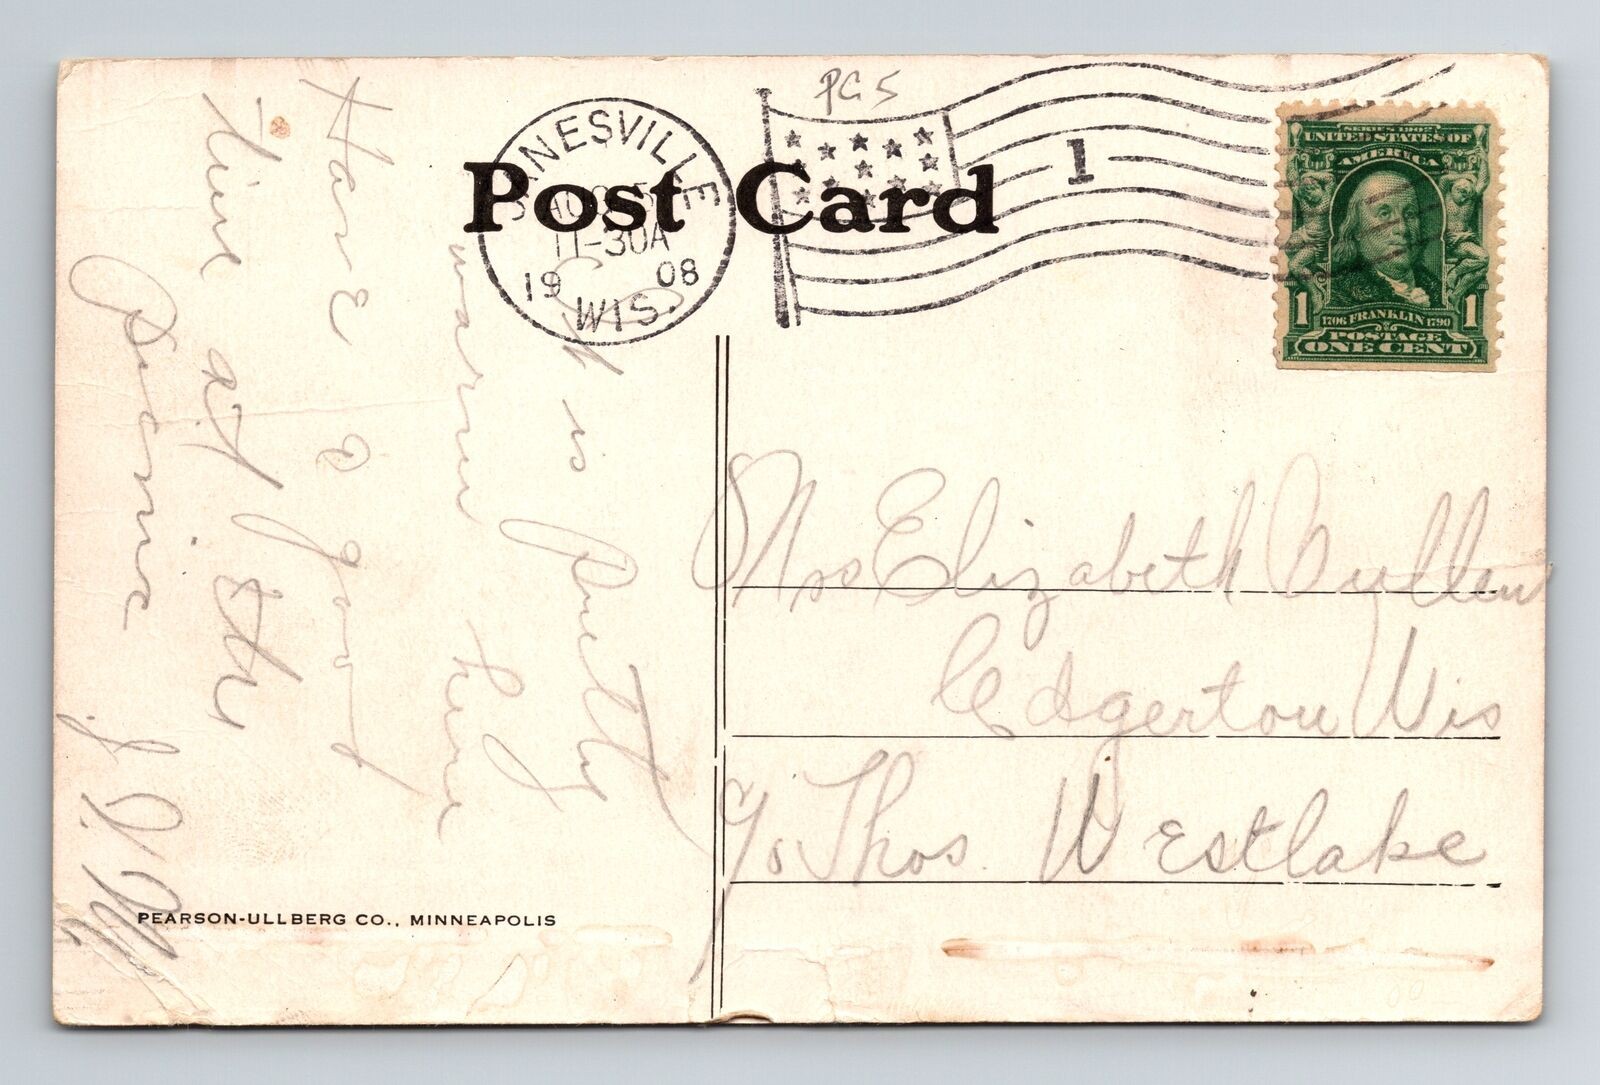 PC 5
Post Card
JANESVILLE
AUG 5
11-30A
1908
WIS.
1
SERIES 1902
UNITED STATES OF
AMERICA
1 1706 FRANKLIN 1790 1
POSTAGE
ONE CENT
It is pretty
warm here
Have a good
time at the
picnic
Mrs Elizabeth Cullen
Edgerton Wis
c/o Thos. Westlake
PEARSON-ULLBERG CO., MINNEAPOLIS